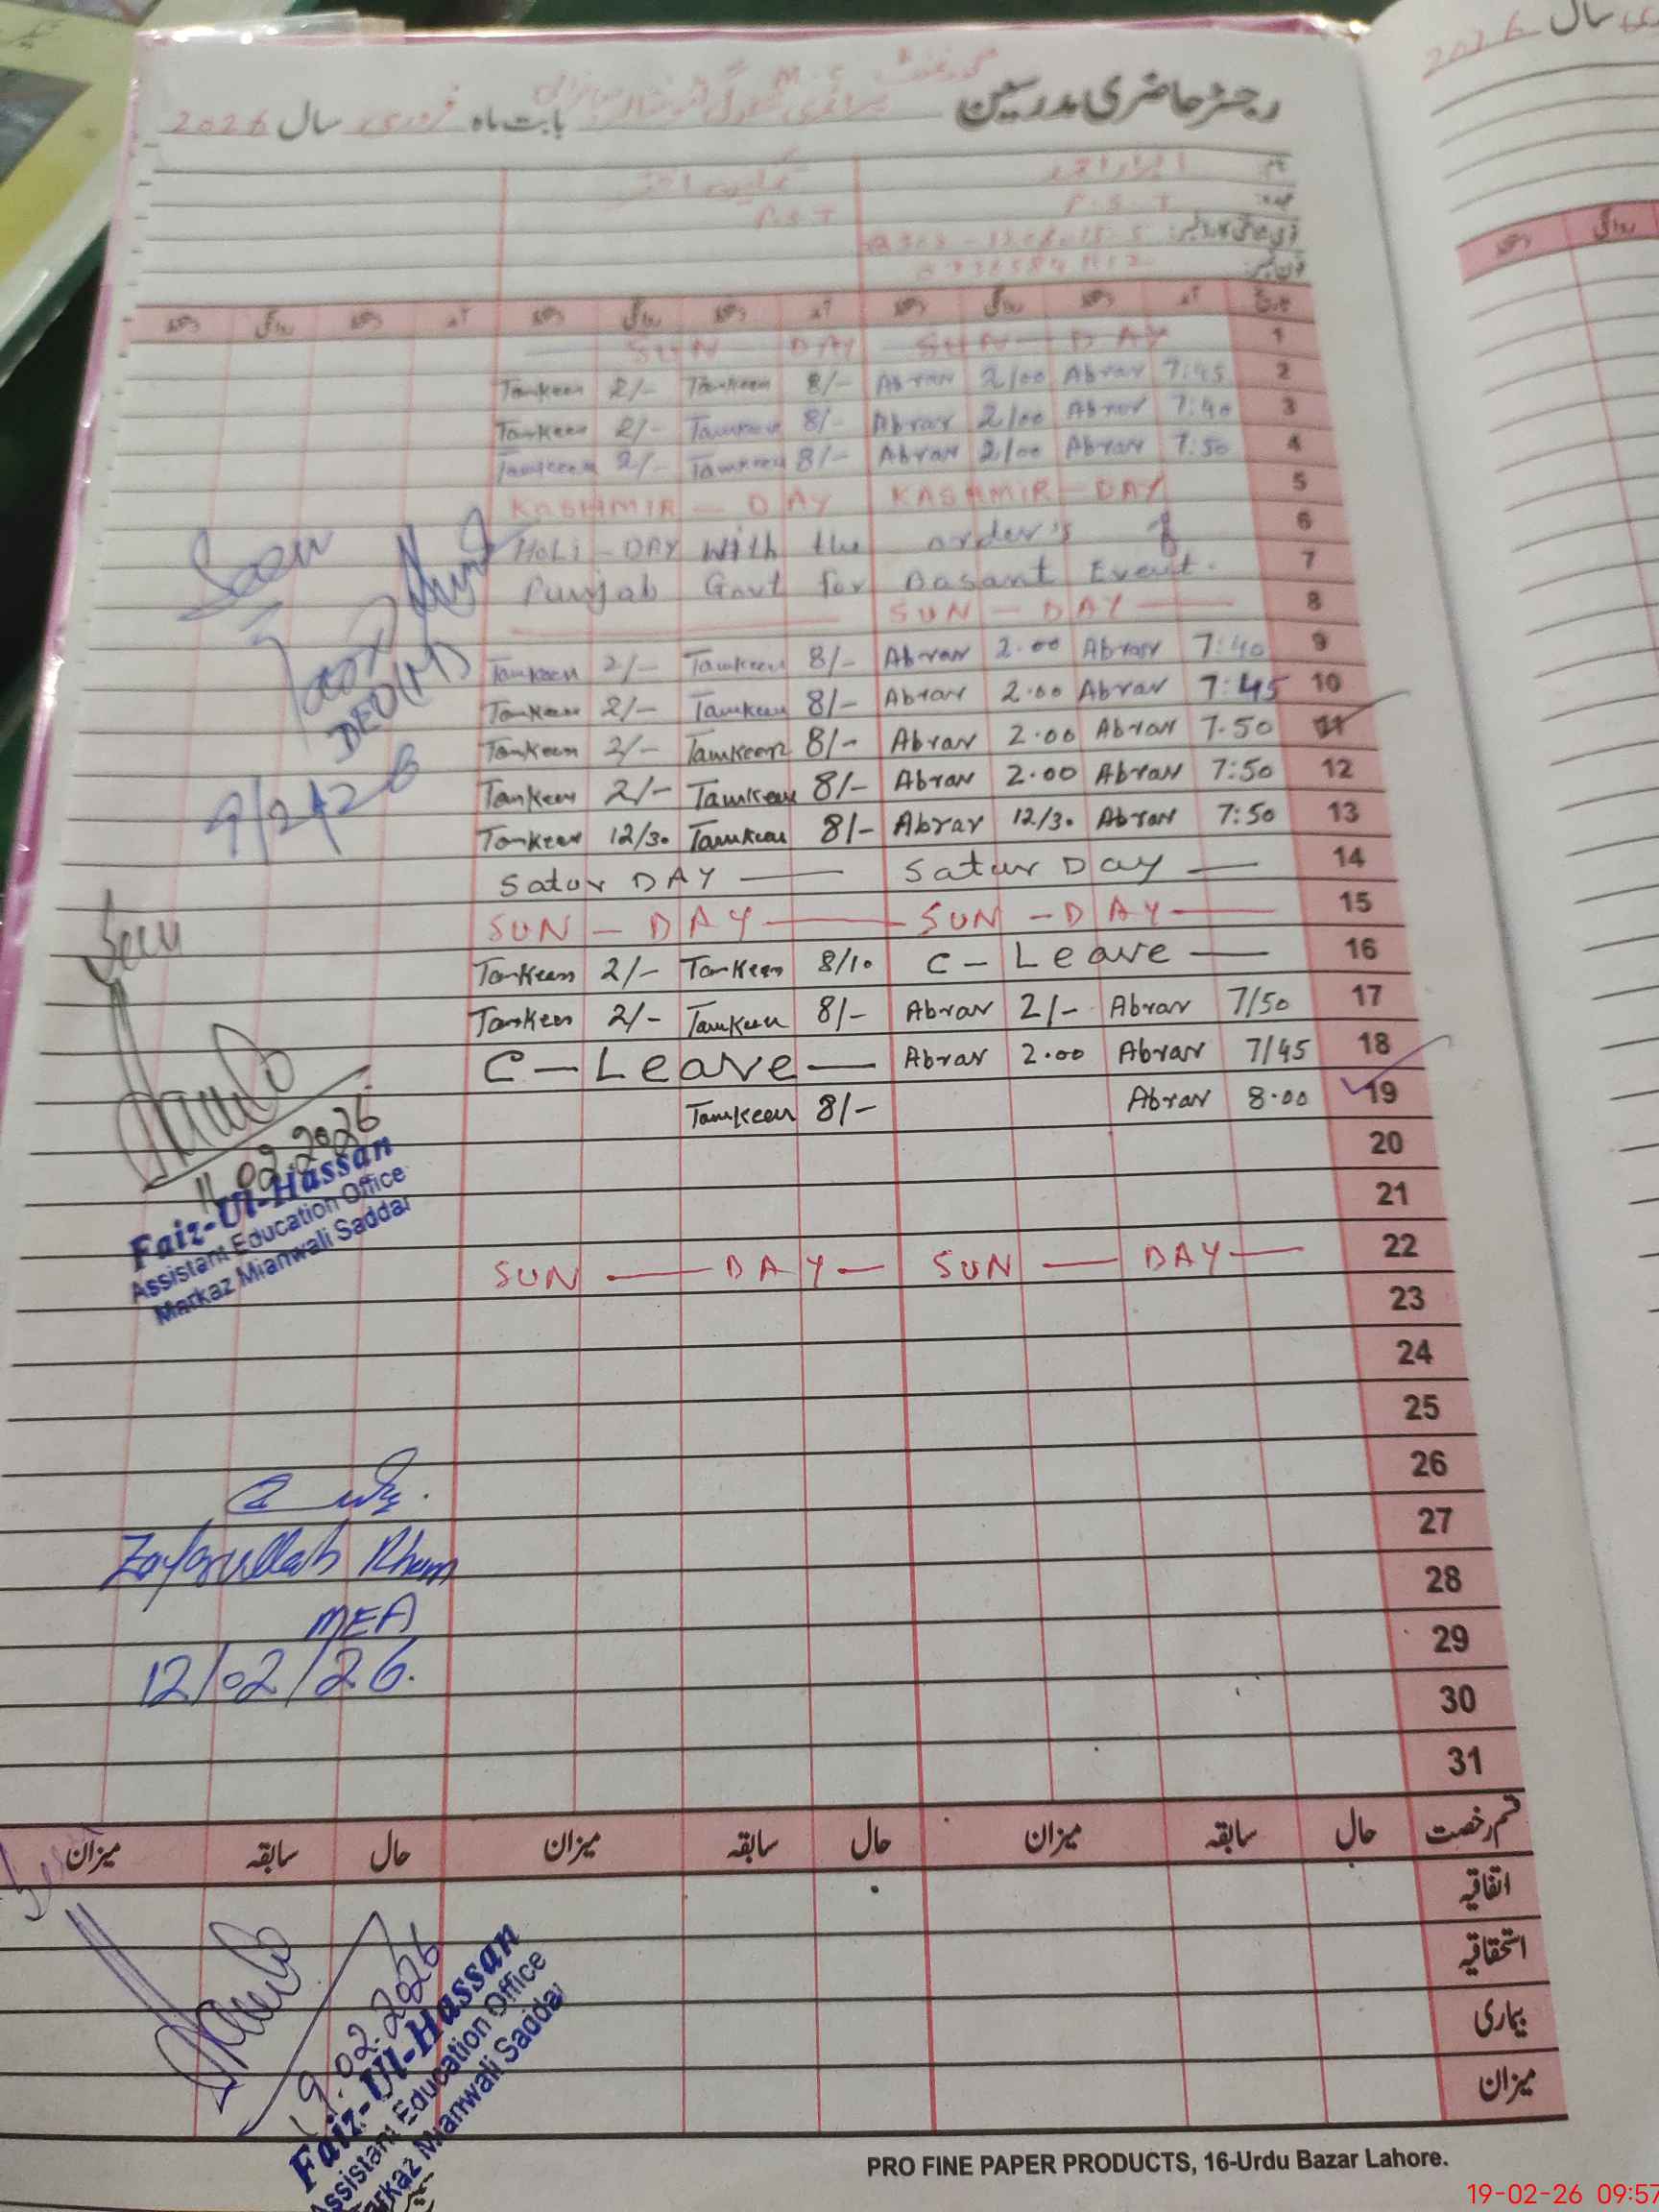 رجسٹر حاضری مدرسین بابت ماہ فروری سال 2026
نام ابرار احمد
عہدہ P.S.T P.S.T
فون نمبر
تاریخ آمد دستخط روانگی دستخط آمد دستخط روانگی دستخط آمد دستخط روانگی دستخط
SUN DAY SUN DAY 1
Tamkeen 2/- Tamkeen 8/- Abrar 2/00 Abrar 7:45 2
Tamkeen 2/- Tamkeen 8/- Abrar 2/00 Abrar 7:40 3
Tamkeen 2/- Tamkeen 8/- Abrar 2/00 Abrar 7:50 4
KASHMIR - DAY KASHMIR - DAY 5
HoLi - DAY With the order's of 6
Punjab Govt for Basant Event. 7
SUN - DAY 8
Tamkeen 2/- Tamkeen 8/- Abrar 2.00 Abrar 7:40 9
Tamkeen 2/- Tamkeen 8/- Abrar 2.00 Abrar 7:45 10
Tamkeen 2/- Tamkeen 8/- Abrar 2.00 Abrar 7.50 11
Tamkeen 2/- Tamkeen 8/- Abrar 2.00 Abrar 7:50 12
Tamkeen 12/30 Tamkeen 8/- Abrar 12/30 Abrar 7:50 13
Satur DAY Satur Day 14
SUN - DAY SUN - DAY 15
Tamkeen 2/- Tamkeen 8/10 C - Leave 16
Tamkeen 2/- Tamkeen 8/- Abrar 2/- Abrar 7/50 17
C - Leave Abrar 2.00 Abrar 7/45 18
Tamkeen 8/- Abrar 8.00 19
20
21
SUN DAY SUN DAY 22
23
24
25
26
27
28
29
30
31
Seen
DEO(M)
9/2/26
Seen
11.02.2026
Faiz-Ul-Hassan
Assistant Education Office
Markaz Mianwali Saddar
Zafarullah Khan
MEA
12/02/26.
قسم رخصت حال سابقہ میزان حال سابقہ میزان حال سابقہ میزان
اتفاقیہ
استحقاقیہ
بیماری
میزان
19.02.2026
Faiz-Ul-Hassan
Assistant Education Office
Markaz Mianwali Saddar
PRO FINE PAPER PRODUCTS, 16-Urdu Bazar Lahore.
2026 سال
روانگی دستخط
19-02-26 09:57